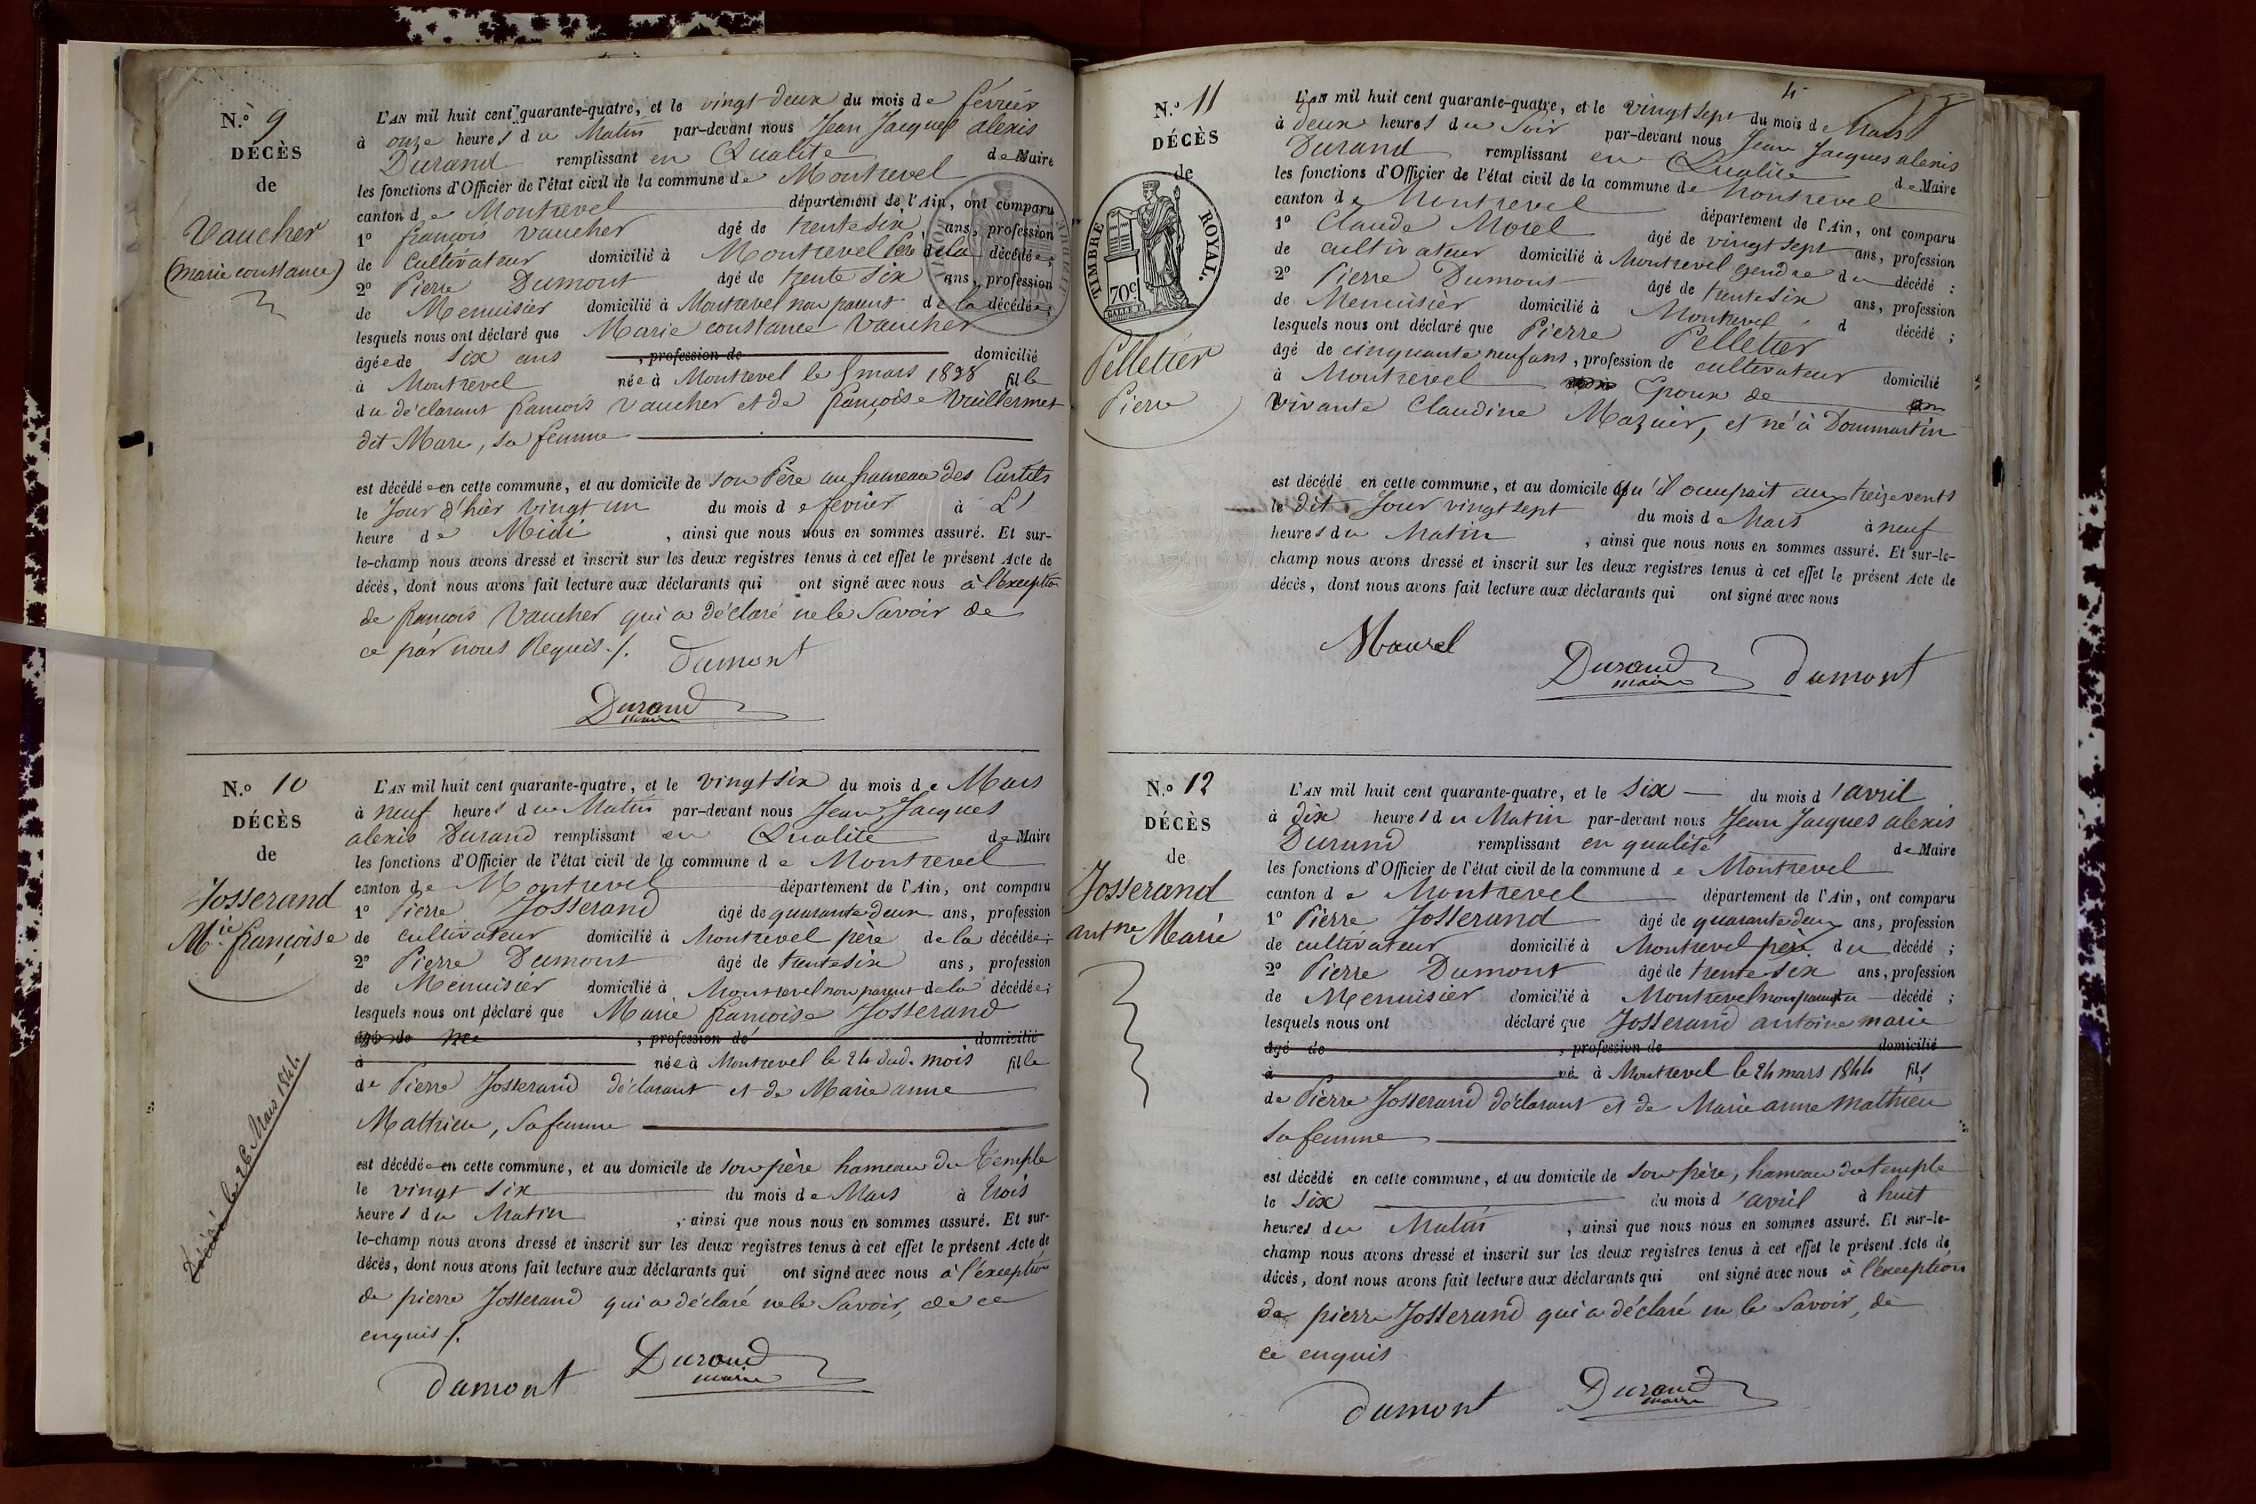 N.º 9
DÉCÈS
de
Vaucher
(marie constance)
L'AN mil huit cent quarante-quatre, et le vingt deux du mois de février
à onze heures du Matin par-devant nous Jean Jacques alexis
Durand remplissant en Qualité de Maire
les fonctions d'Officier de l'état civil de la commune de Montrevel
canton de Montrevel département de l'Ain, ont comparu
1º françois Vaucher âgé de trente six ans, profession
de Cultivateur domicilié à Montrevel père de la décédée;
2º Pierre Dumont âgé de trente six ans, profession
de Menuisier domicilié à Montrevel non parent de la décédée;
lesquels nous ont déclaré que Marie constance Vaucher
âgée de six ans , profession de domicilié
à Montrevel née à Montrevel le 5 mars 1838 fille
du déclarant francois Vaucher et de françoise Vuillermet
dit Mare, sa femme
est décédée en cette commune, et au domicile de son Père au hameau des Curtils
le Jour d'hier vingt un du mois de février à L'
heure de Midi , ainsi que nous nous en sommes assuré. Et sur-
le-champ nous avons dressé et inscrit sur les deux registres tenus à cet effet le présent Acte de
décès, dont nous avons fait lecture aux déclarants qui ont signé avec nous à l'exception
de françois Vaucher qui a déclaré ne le Savoir de
ce par nous Requis ./.
Dumont
Durand
maire
N.º 10
DÉCÈS
de
Josserand
Mie françoise
Décédé le 26 Mars 1844
L'AN mil huit cent quarante-quatre, et le vingt six du mois de Mars
à neuf heures du Matin par-devant nous Jean Jacques
alexis Durand remplissant en Qualité de Maire
les fonctions d'Officier de l'état civil de la commune de Montrevel
canton de Montrevel département de l'Ain, ont comparu
1º Pierre Josserand âgé de quarante deux ans, profession
de cultivateur domicilié à Montrevel père de la décédée;
2º Pierre Dumont âgé de trente six ans, profession
de Menuisier domicilié à Montrevel non parent de la décédée;
lesquels nous ont déclaré que Marie françoise Josserand
âgé de , profession de domicilié
à née à Montrevel le 24 dud. mois fille
de Pierre Josserand déclarant et de Marie anne
Mathieu, Sa femme
est décédée en cette commune, et au domicile de son père hameau du Temple
le vingt six du mois de Mars à trois
heures du Matin , ainsi que nous nous en sommes assuré. Et sur-
le-champ nous avons dressé et inscrit sur les deux registres tenus à cet effet le présent Acte de
décès, dont nous avons fait lecture aux déclarants qui ont signé avec nous à l'exception
de pierre Josserand qui a déclaré ne le Savoir, de ce
enquis ./.
Dumont
Durand
maire
4
N.º 11
DÉCÈS
de
TIMBRE ROYAL.
70c
Pelletier
Pierre
L'AN mil huit cent quarante-quatre, et le vingt sept du mois de Mars
à deux heures du Soir par-devant nous Jean Jacques alexis
Durand remplissant en Qualité de Maire
les fonctions d'Officier de l'état civil de la commune de Montrevel
canton de Montrevel département de l'Ain, ont comparu
1º Claude Morel âgé de vingt sept ans, profession
de cultivateur domicilié à Montrevel gendre du décédé;
2º Pierre Dumont âgé de trente six ans, profession
de Menuisier domicilié à Montrevel d décédé;
lesquels nous ont déclaré que Pierre Pelletier
âgé de cinquante neuf ans, profession de cultivateur domicilié
à Montrevel Epoux de
vivante Claudine Mazuir, et né à Dommartin
est décédé en cette commune, et au domicile qu'il occupait aux treize vents
le dit Jour vingt sept du mois de Mars à neuf
heures du Matin , ainsi que nous nous en sommes assuré. Et sur-le-
champ nous avons dressé et inscrit sur les deux registres tenus à cet effet le présent Acte de
décès, dont nous avons fait lecture aux déclarants qui ont signé avec nous
Maurel
Durand
maire
Dumont
N.º 12
DÉCÈS
de
Josserand
antne Marie
L'AN mil huit cent quarante-quatre, et le six du mois d'avril
à dix heures du Matin par-devant nous Jean Jacques alexis
Durand remplissant en qualité de Maire
les fonctions d'Officier de l'état civil de la commune de Montrevel
canton de Montrevel département de l'Ain, ont comparu
1º Pierre Josserand âgé de quarante deux ans, profession
de cultivateur domicilié à Montrevel père du décédé;
2º Pierre Dumont âgé de trente six ans, profession
de Menuisier domicilié à Montrevel non parent du décédé;
lesquels nous ont déclaré que Josserand antoine marie
âgé de , profession de domicilié
à né à Montrevel le 24 mars 1844 fils
de Pierre Josserand déclarant et de Marie anne Mathieu
sa femme
est décédé en cette commune, et au domicile de son père, hameau du temple
le six du mois d'avril à huit
heures du Matin , ainsi que nous nous en sommes assuré. Et sur-le-
champ nous avons dressé et inscrit sur les deux registres tenus à cet effet le présent Acte de
décès, dont nous avons fait lecture aux déclarants qui ont signé avec nous à l'exception
de pierre Josserand qui a déclaré ne le Savoir, de
ce enquis
Dumont
Durand
maire